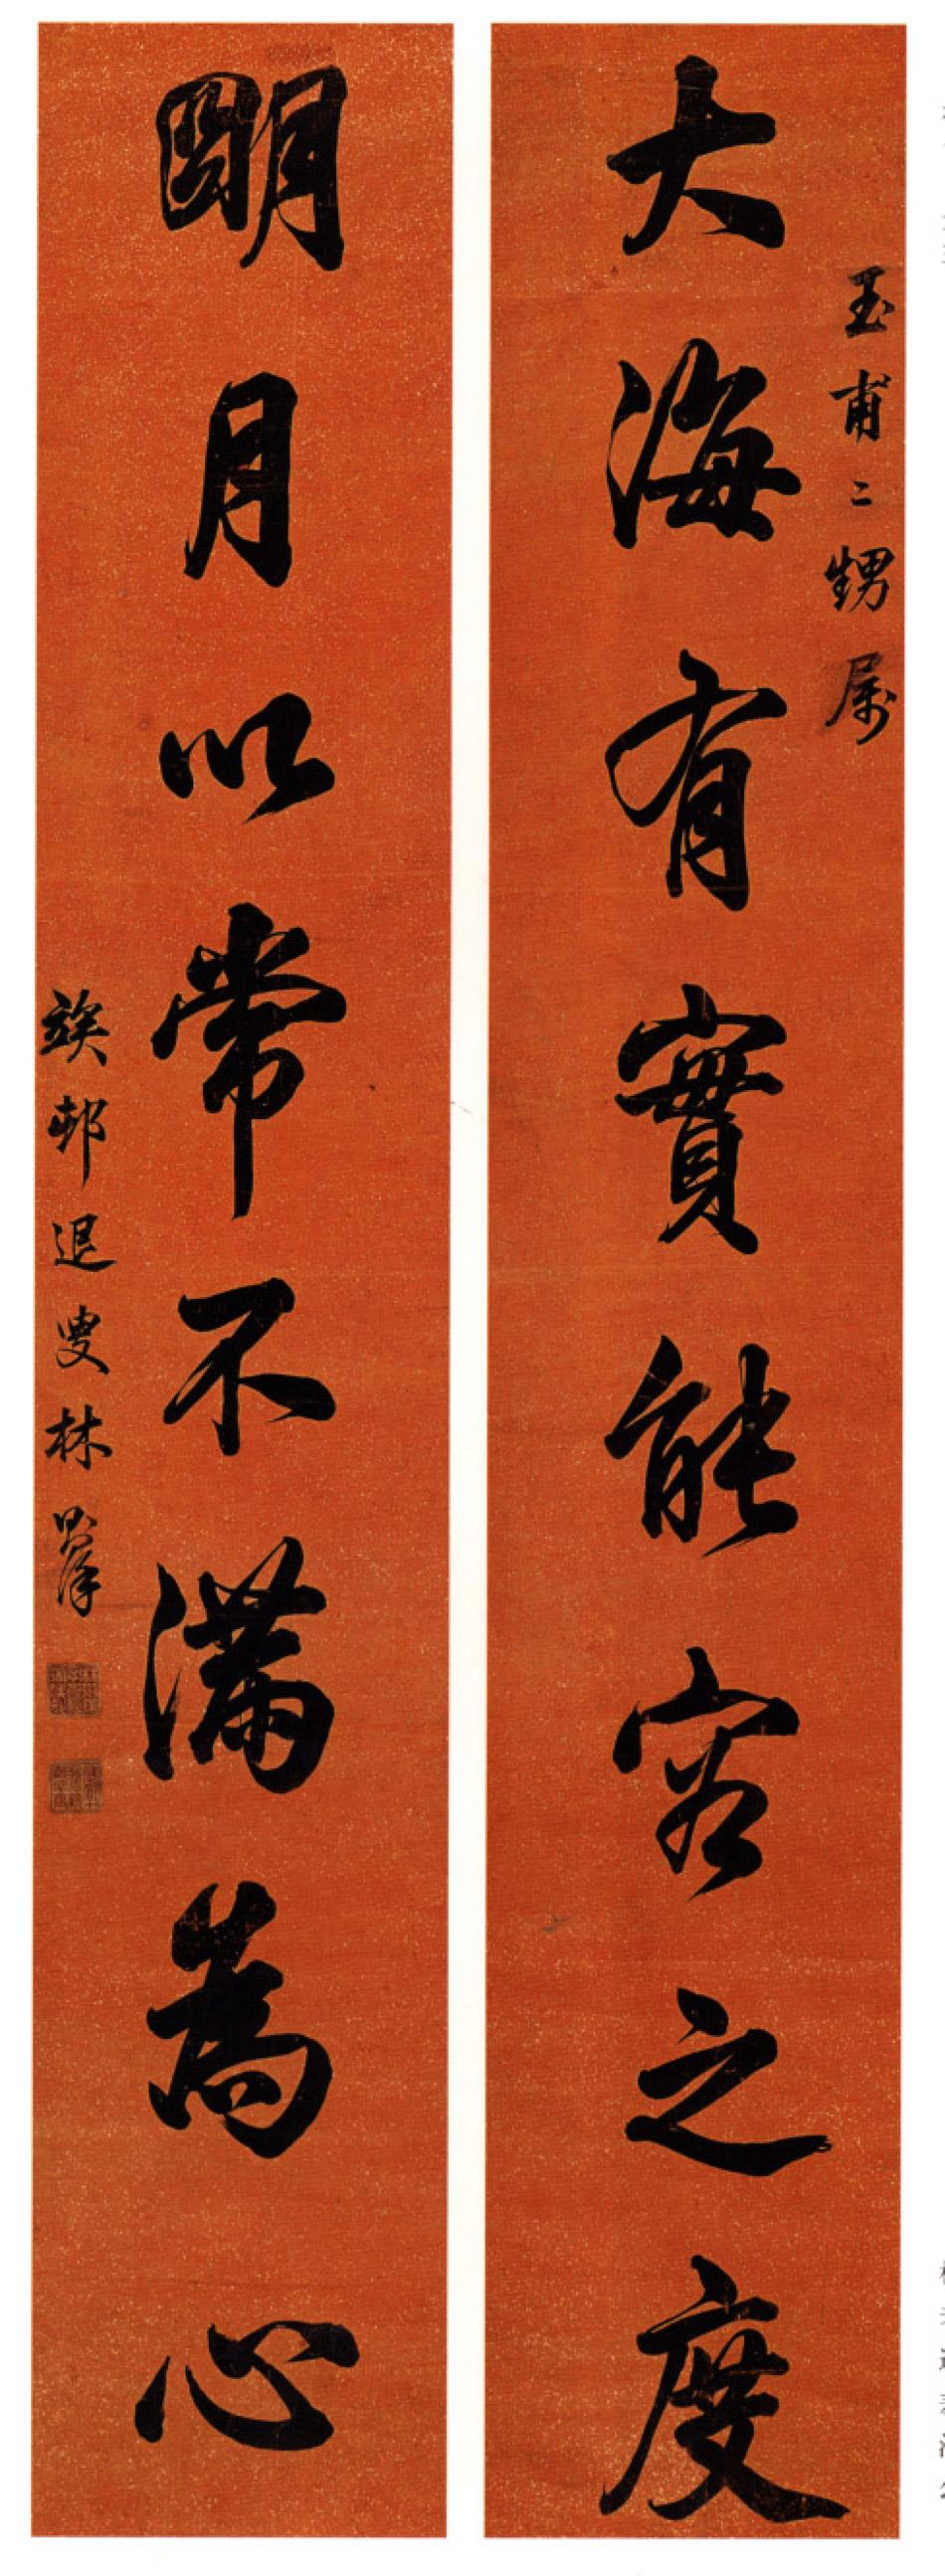 大海有實能容之度
玉甫二甥属
明月以常不滿為心
竢邨退叟林則徐